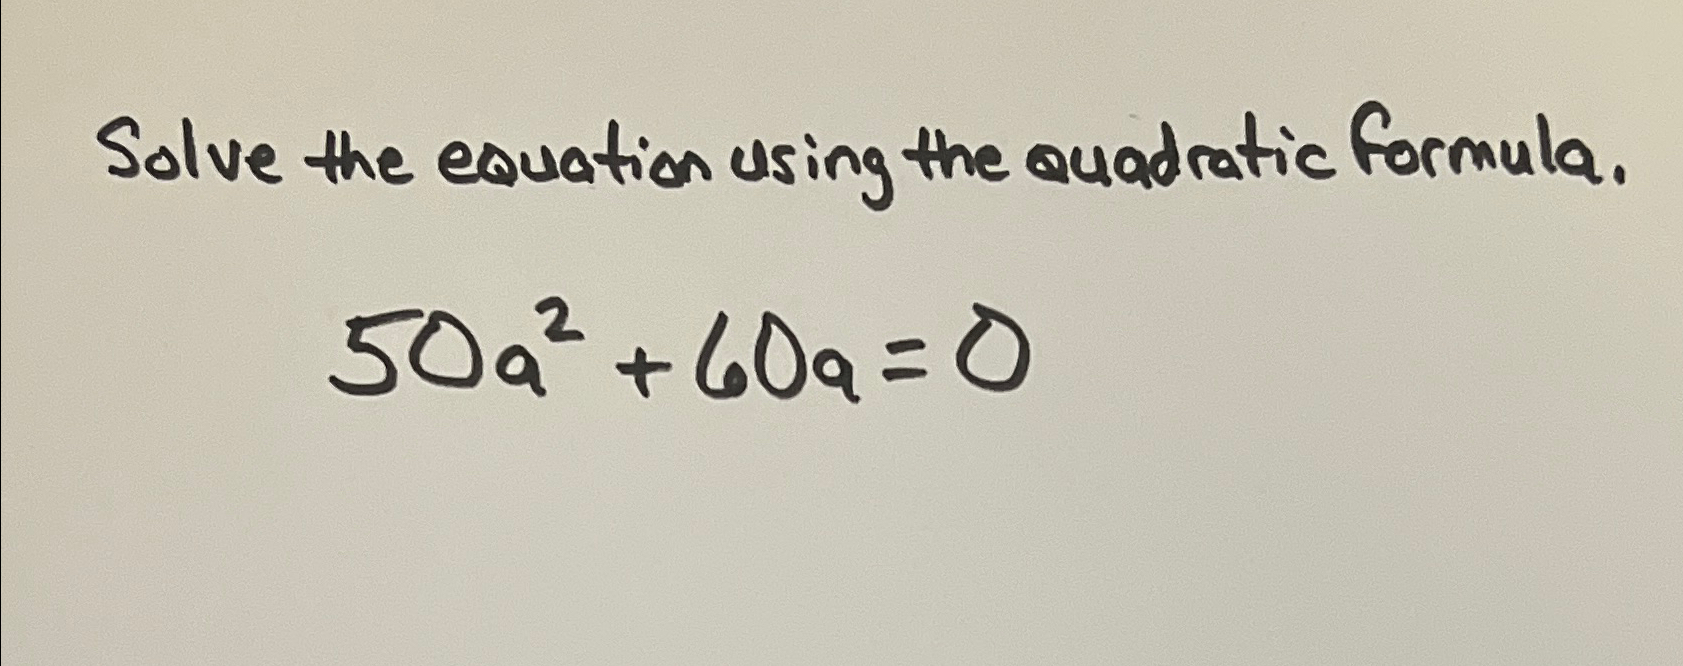 Solve the equation using the quadratic formula.
50a² + 60a = 0